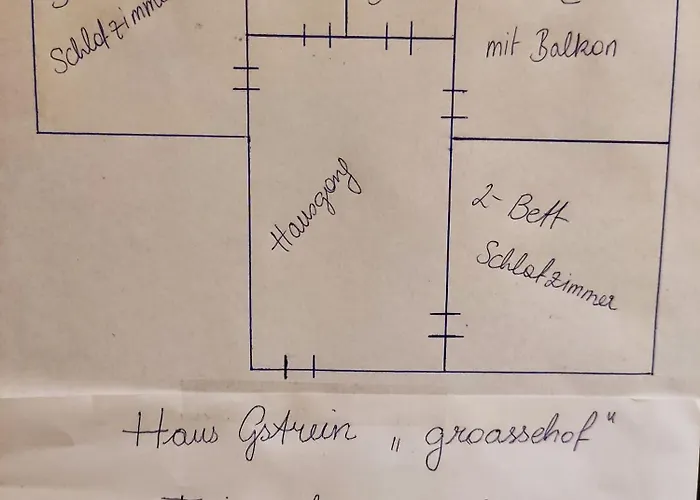 Schlafzimmer
mit Balkon
Hausgang
2-Bett
Schlafzimmer
Haus Gstrein „groassehof“